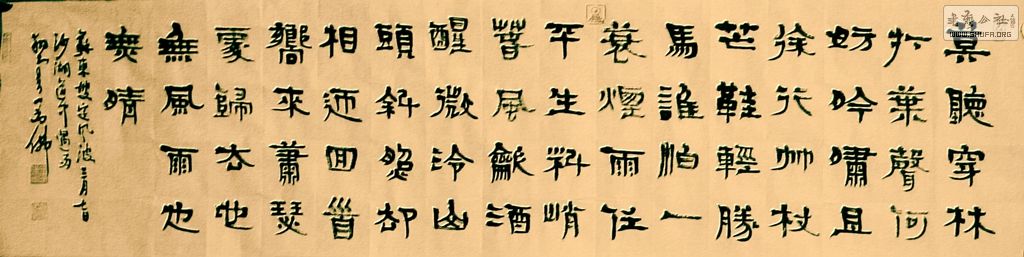 莫聽穿林
打葉聲何
妨吟嘯且
徐行竹杖
芒鞋輕勝
馬誰怕一
蓑煙雨任
平生料峭
春風龡酒
醒微冷山
頭斜照却
相迎回首
嚮來蕭瑟
處歸去也
無風雨也
無晴
蘇東坡定風波三月七日
沙湖道中遇雨
WWW.SHUFA.ORG